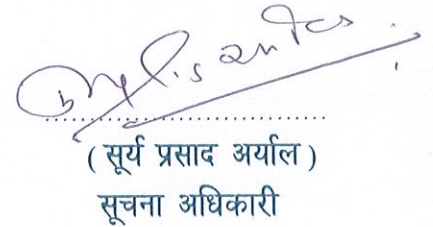 ( सूर्य प्रसाद अर्याल )
सूचना अधिकारी